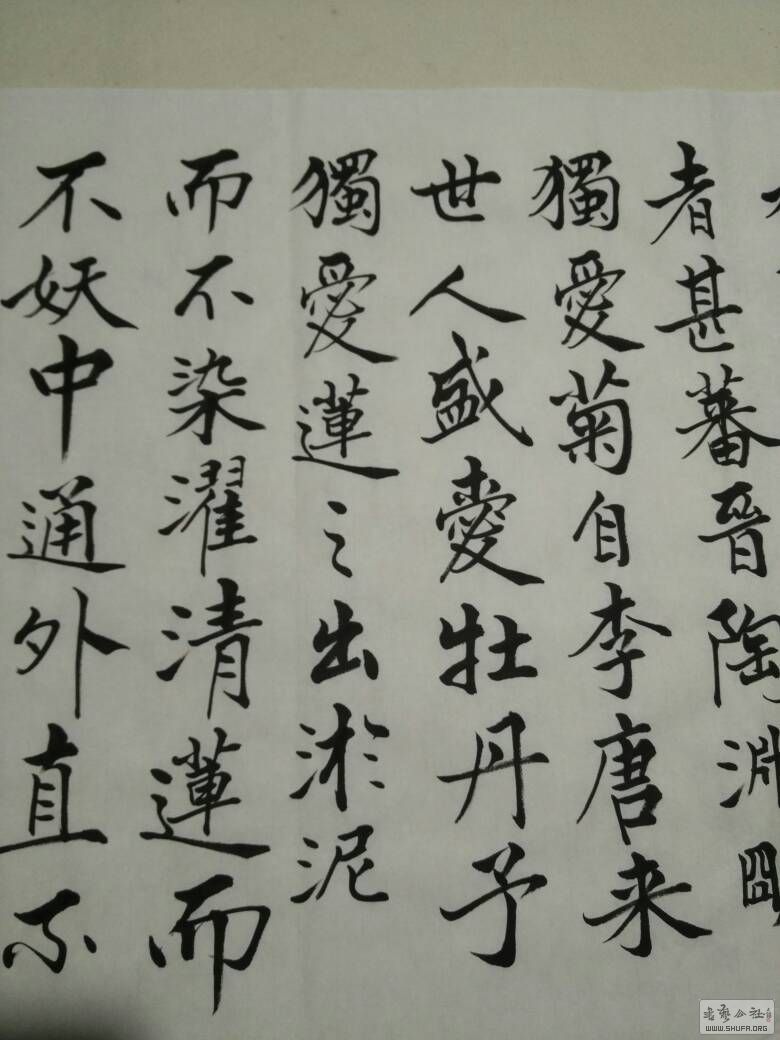 者甚蕃晉陶淵明
獨愛菊自李唐来
世人盛愛牡丹予
獨愛蓮之出淤泥
而不染濯清蓮而
不妖中通外直不
書藝公社
WWW.SHUFA.ORG